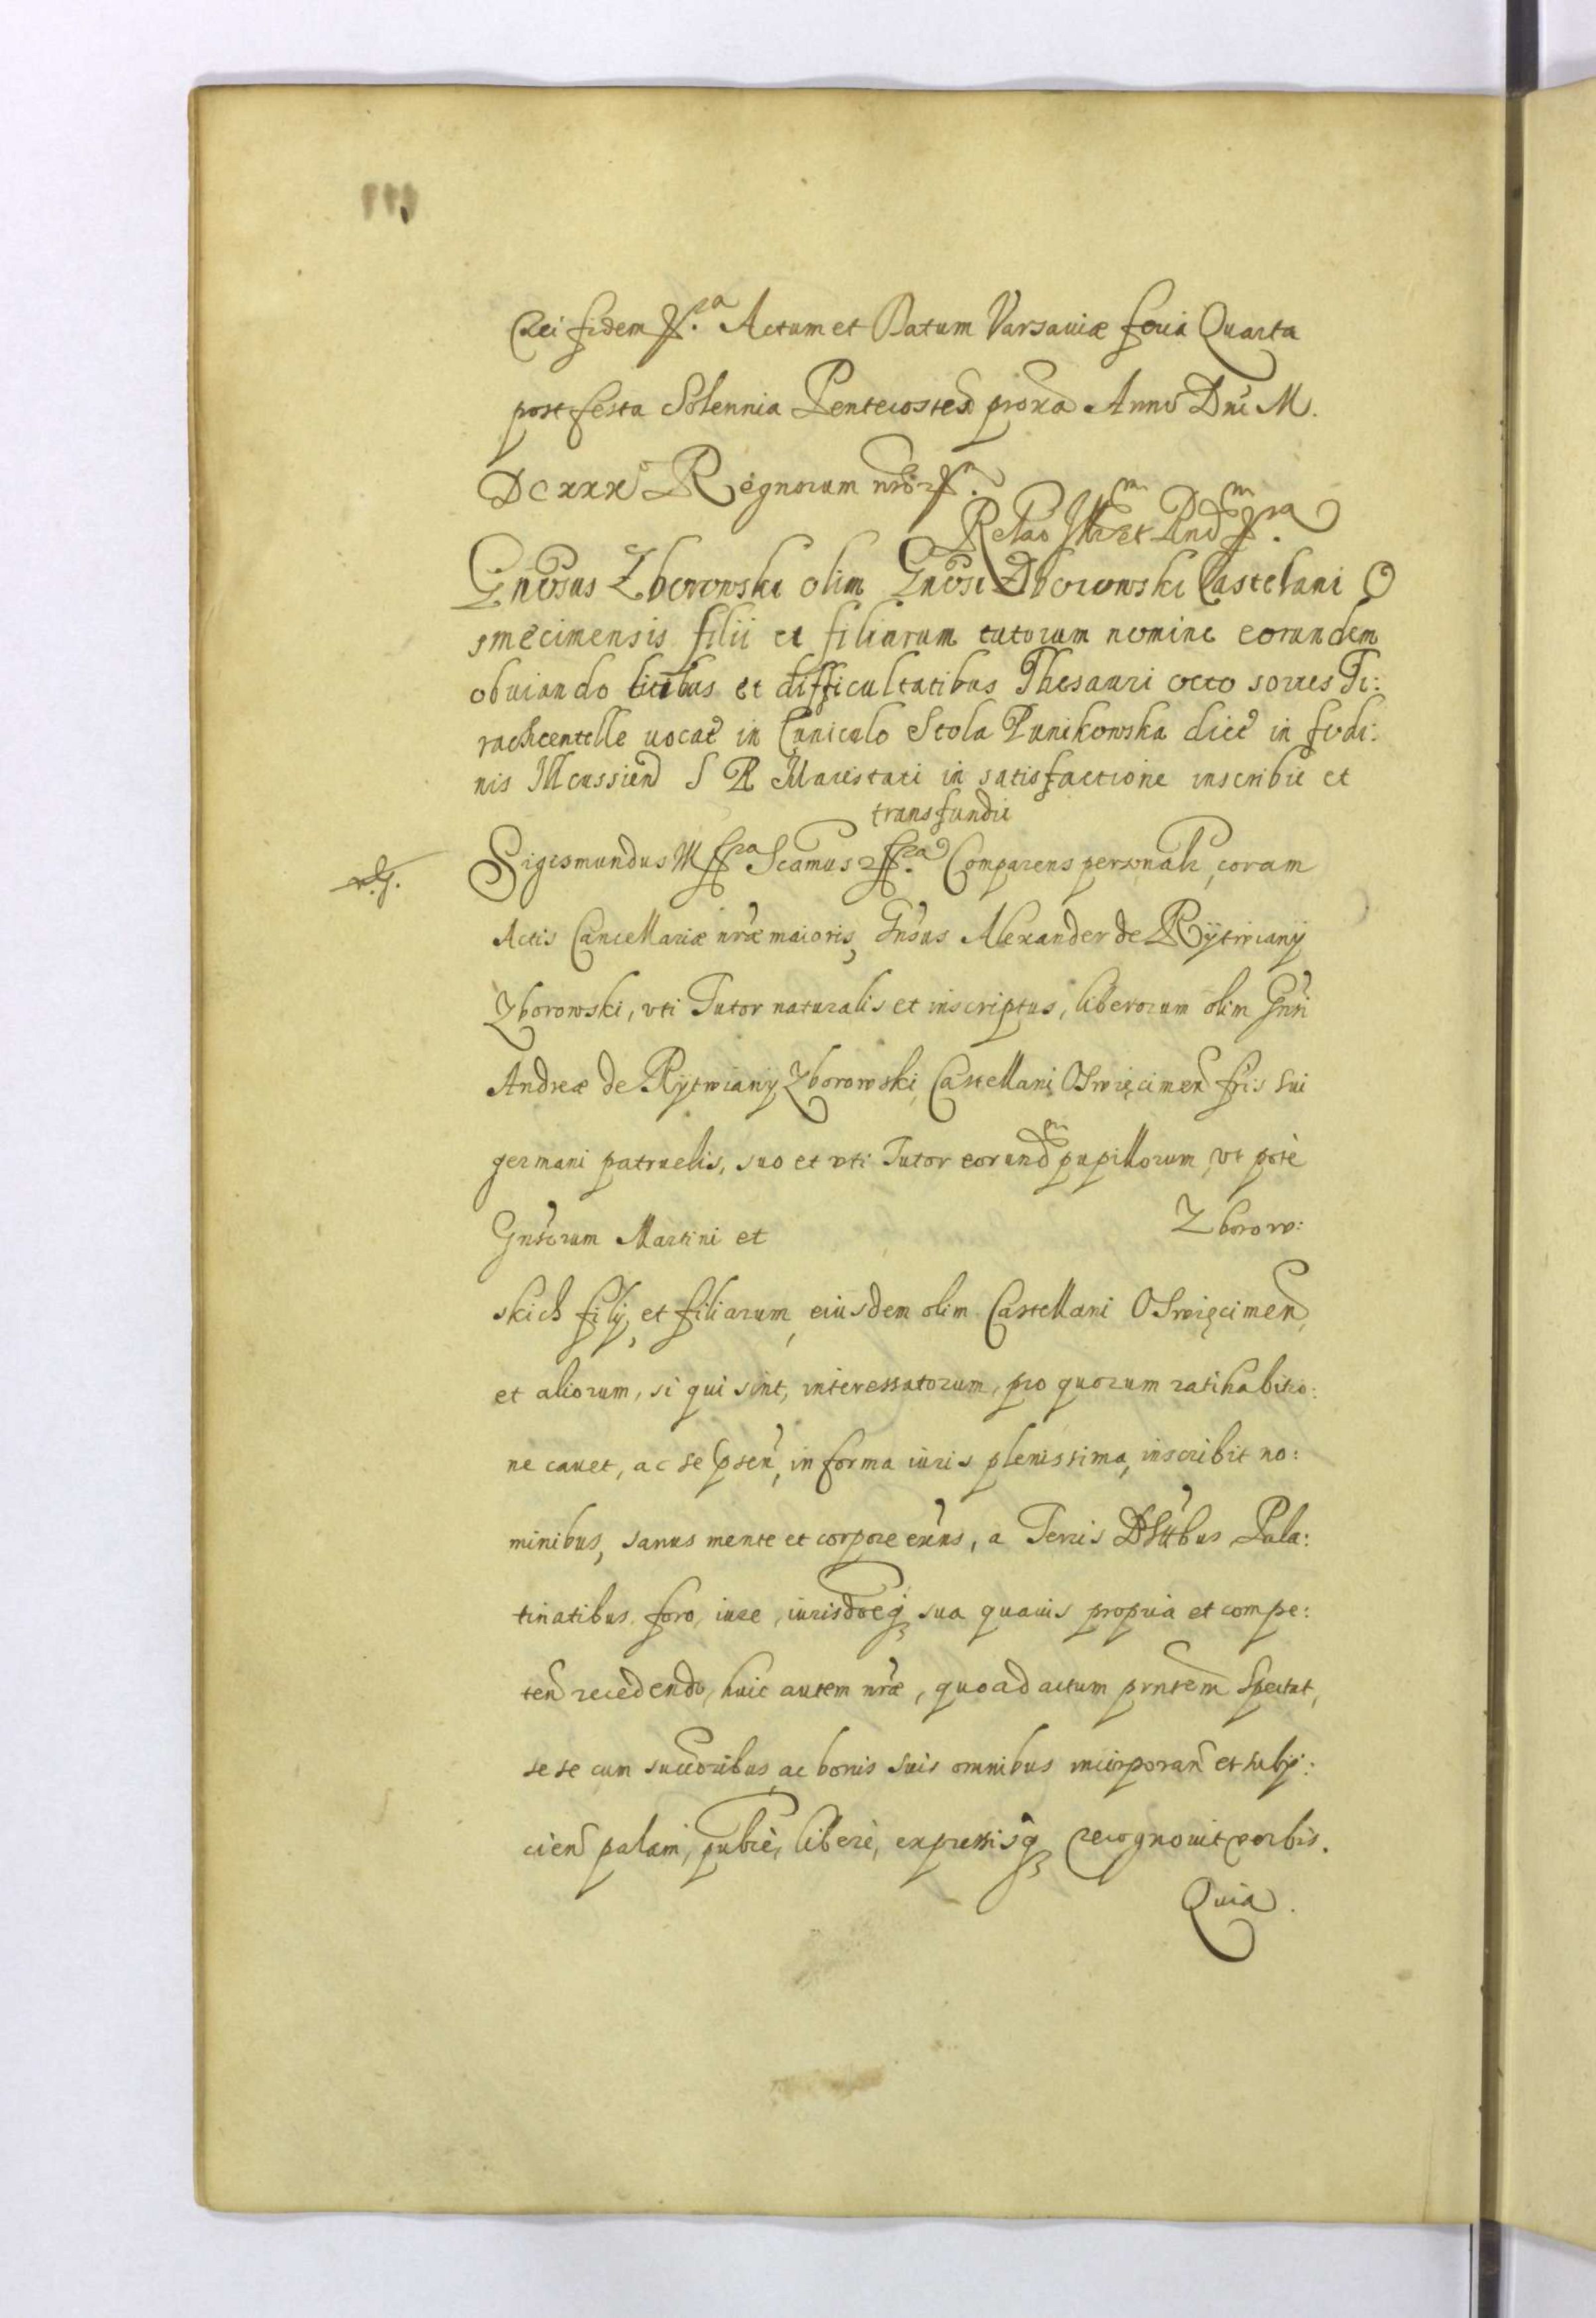 Rei fidem Actum et Datum Varsaviæ feria Quarta
post festa Solennia Pentecostes proxa Anno Dni M.
DCXXX Regnorum nror
Relao Illr et Rnd
Gnosus Zborowski olim Gnosi Zborowski Castelani O
smecimensis filii et filiarum tutorum nomine eorundem
obuiando litibus et difficultatibus Thesauri octo sortes Ti:
rachcentelle uocat in Cuniculo Stola Punikowska dict in fodi:
nis Illcussien S R Maiestati in satisfactione inscribit et
transfundit
Sigismundus Scamus Comparens personalr, coram
Actis Cancellariæ nræ maioris, Gnsus Alexander de Rÿtwianÿ
Zborowski, vti Tutor naturalis et inscriptus, liberorum olim Gnsi
Andreæ de Rÿtwianÿ Zborowski Castellani Oswięcimen fris sui
germani patruelis, suo et vti Tutor eorund pupillorum, vt pote
Gnsorum Martini et Zborow:
skich filÿ, et filiarum, eiusdem olim Castellani Oswięcimen,
et aliorum, si qui sint, interessatorum, pro quorum ratihabitio:
ne cauet, ac se psen, in forma iuris plenissima, inscribit no:
minibus, sanus mente et corpore exns, a Terris Dsttbus Pala:
tinatibus foro, iure, iurisdoeq sua quauis propria et compe:
ten recedendo, huic autem nræ, quoad actum prntem spectat,
se se cum succoribus ac bonis suis omnibus incorporan et subÿ:
cien palam, publce, libere, expressisq recognouit verbis.
Quia.